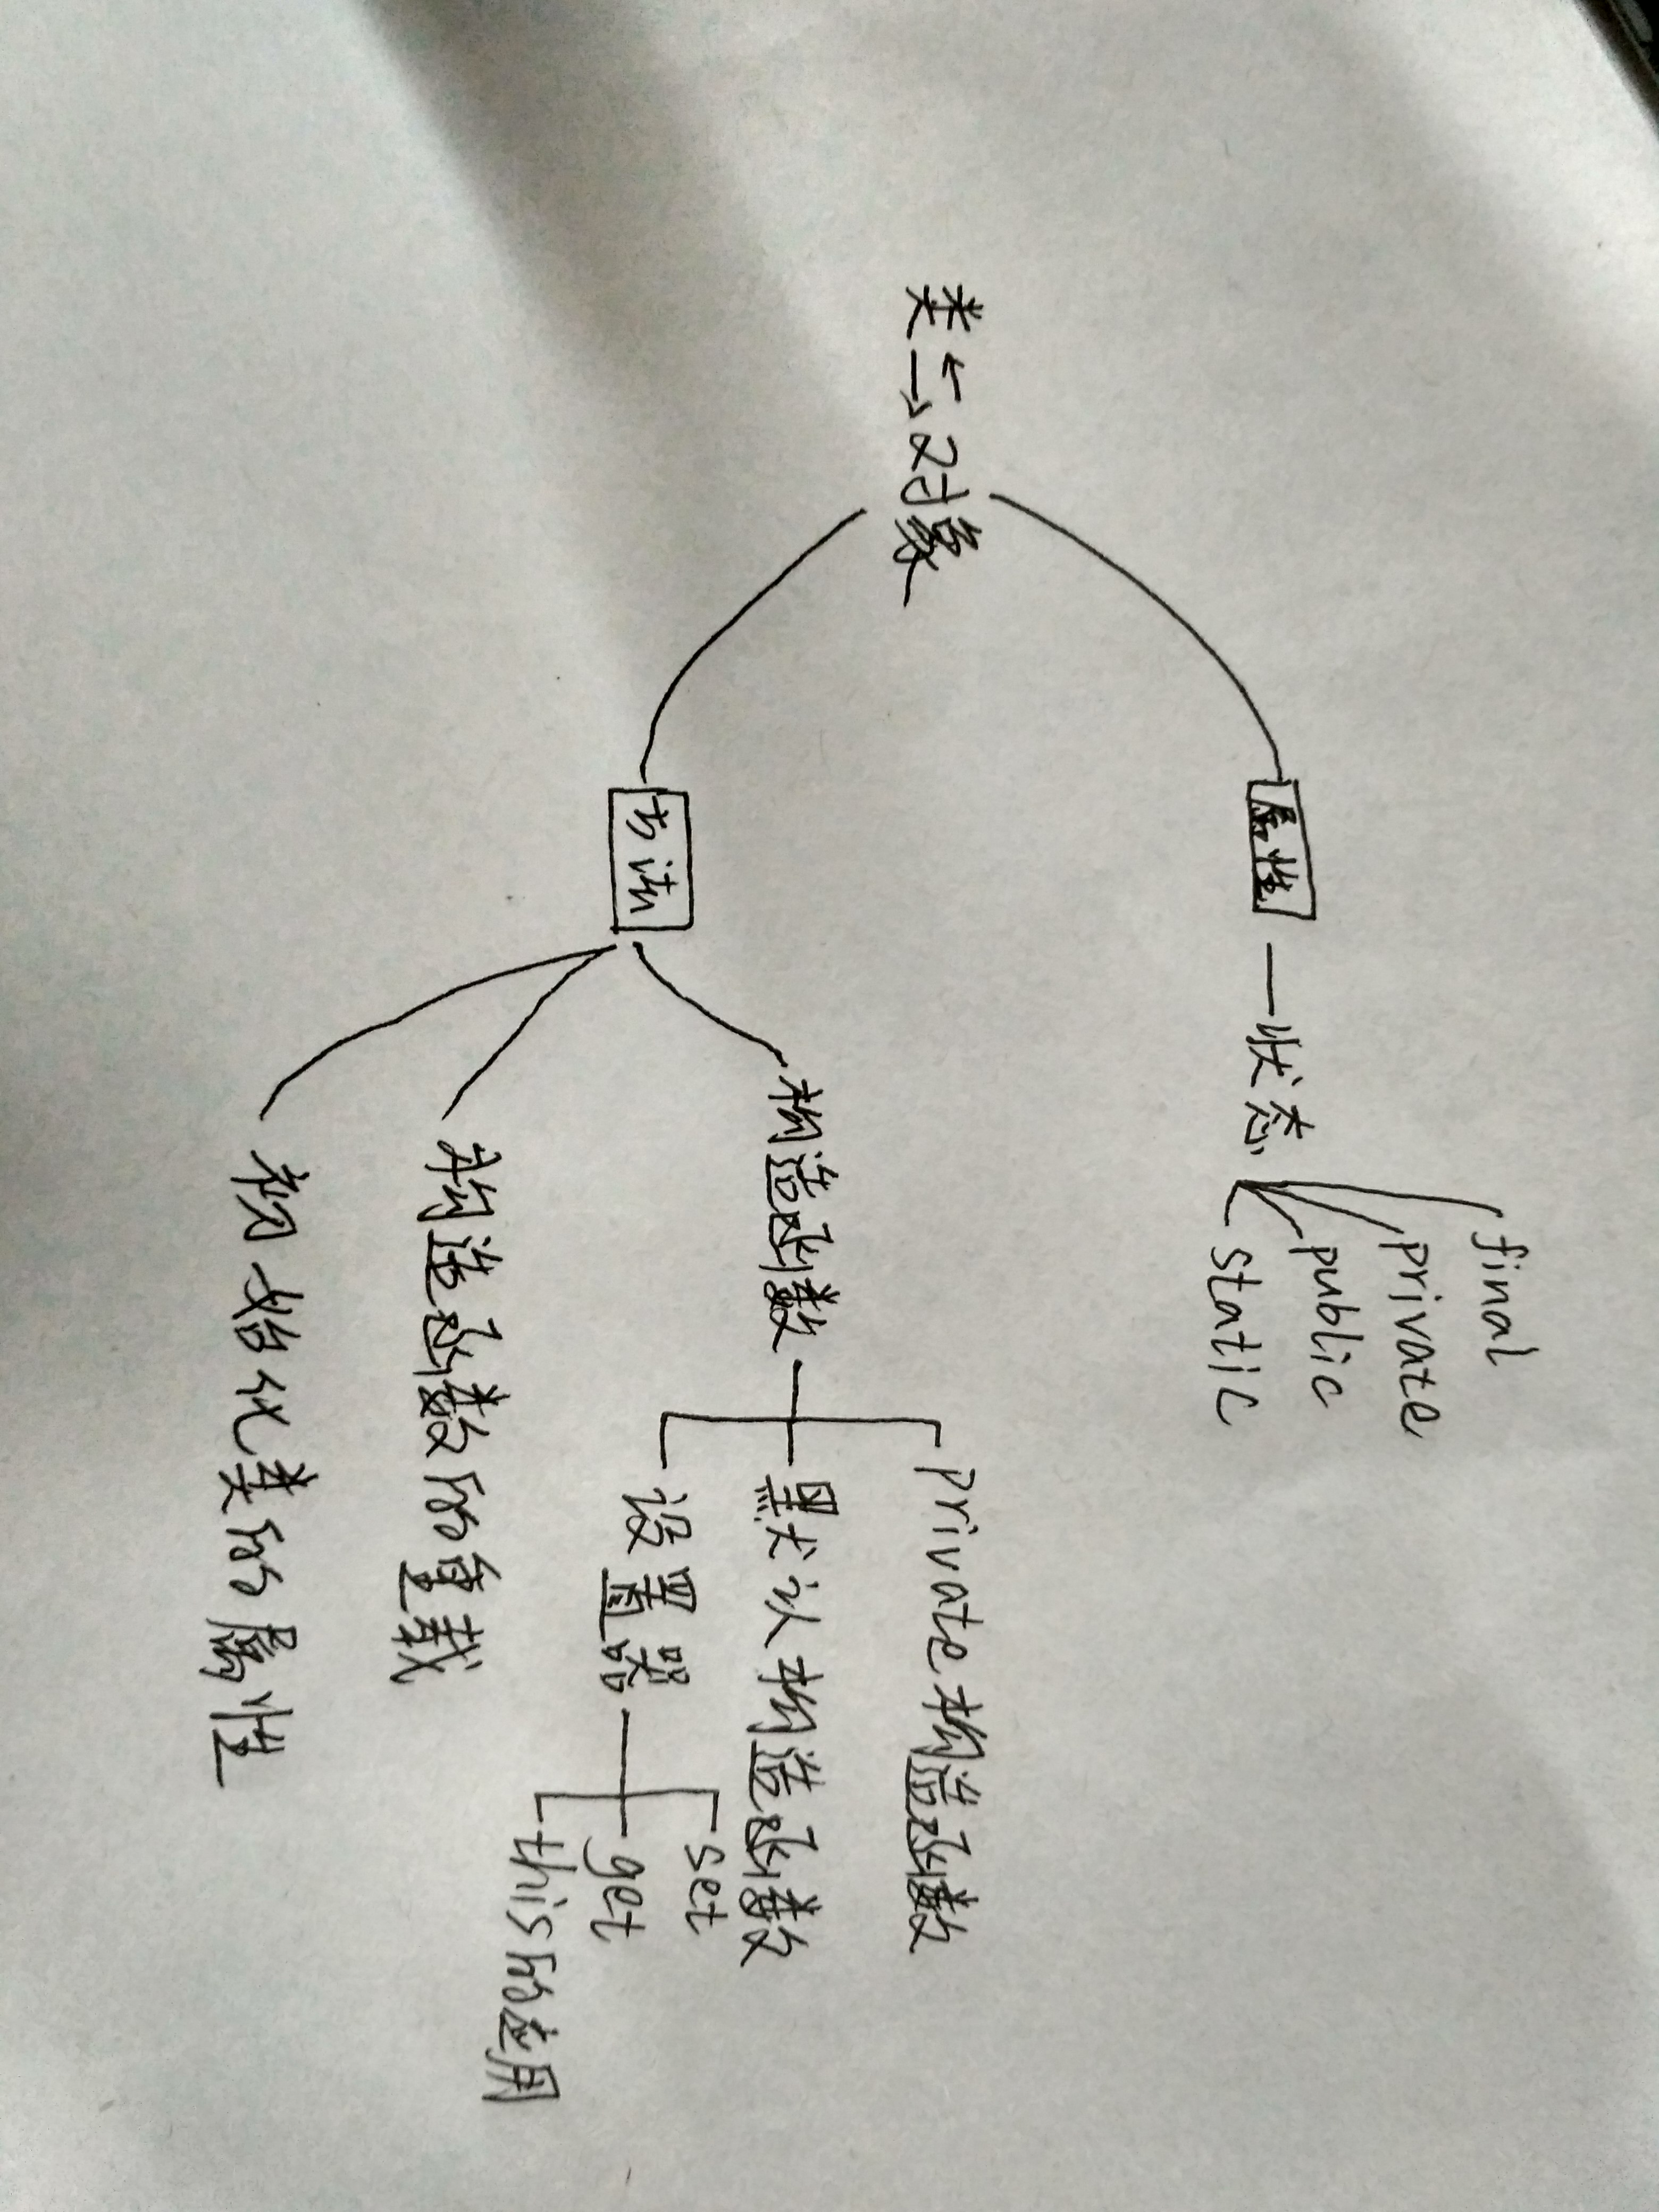 类⇆对象
属性
状态
final
private
public
static
方法
构造函数
private构造函数
默认构造函数
设置器
set
get
this的应用
构造函数的重载
初始化类的属性